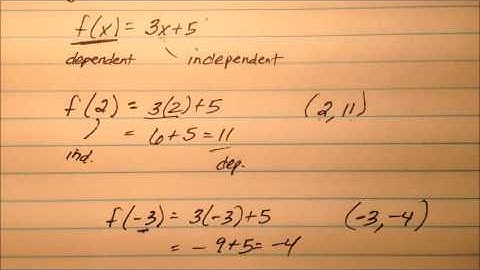 f(x) = 3x+5
dependent independent
f(2) = 3(2)+5 (2,11)
= 6+5=11
ind. dep.
f(-3) = 3(-3)+5 (-3,-4)
= -9+5=-4